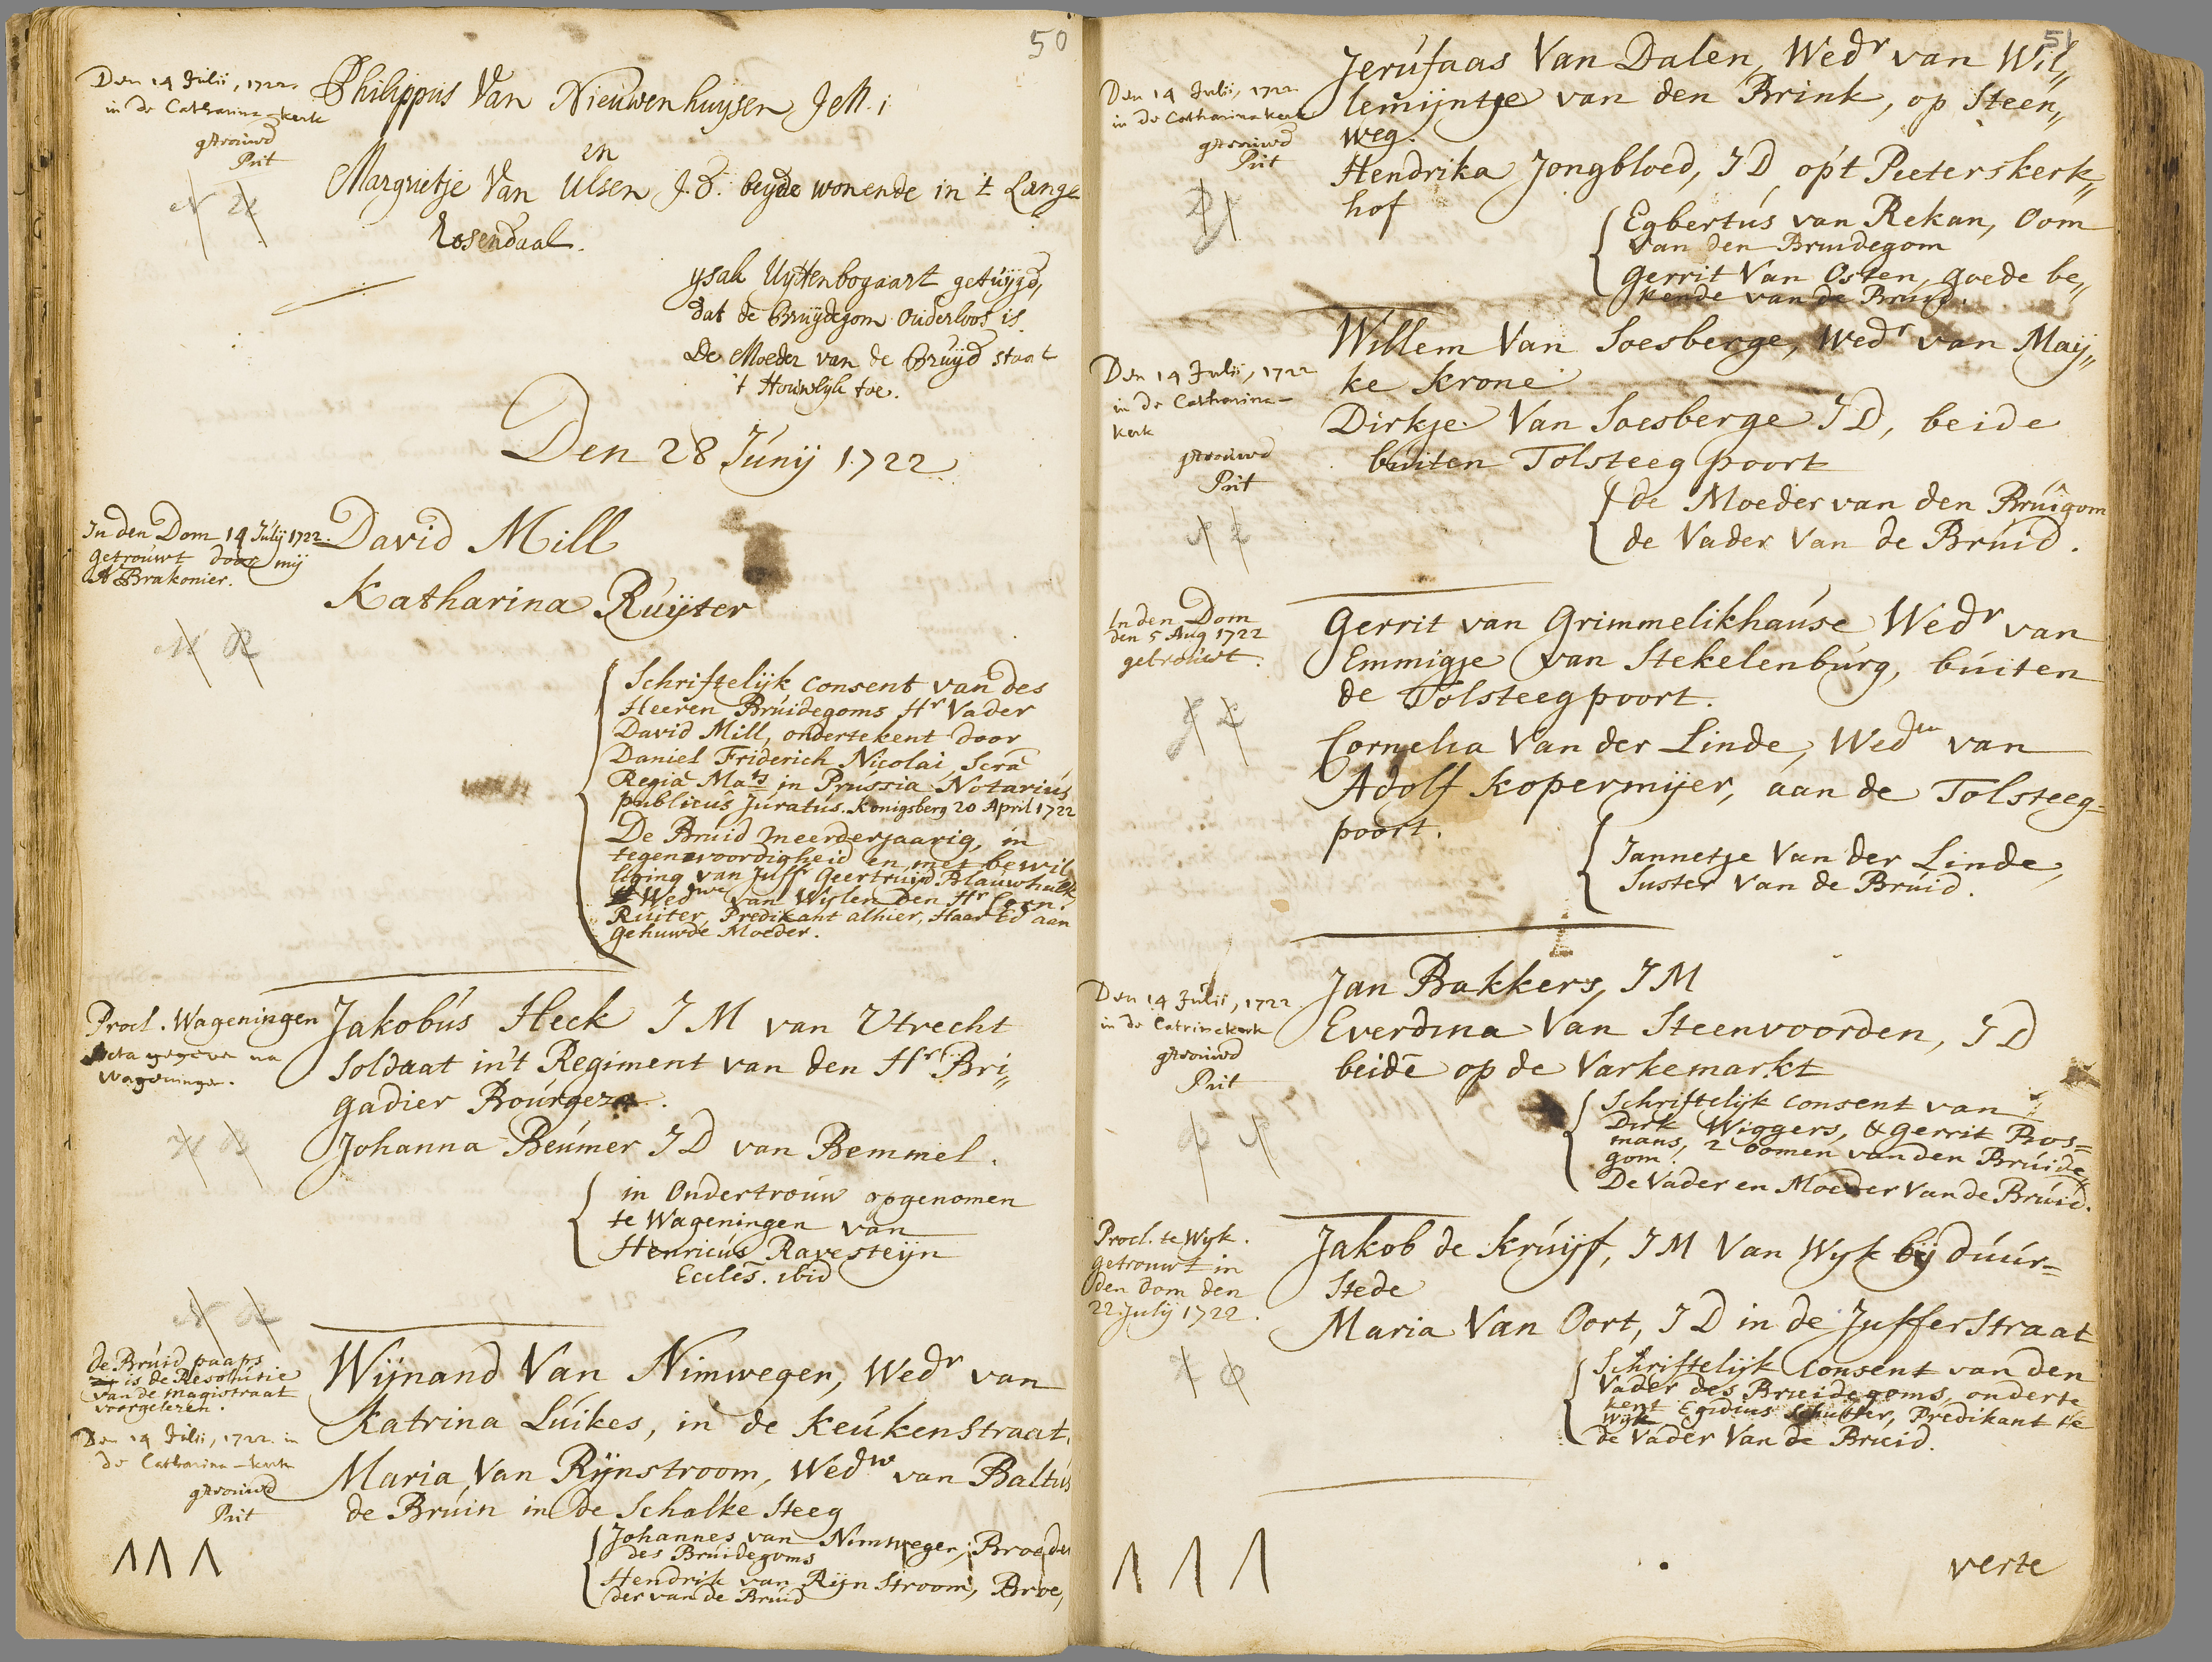 50
Den 14 Julii, 1722.
in de Catharina-kerk
getrouwd
Prit
N U
Philippus Van Nieuwenhuysen J M. :
en
Margrietje Van Ulsen J. D. beyde wonende in 't Lange
Rosendaal.
ysak Uyttenbogaart getuijgd,
dat de Bruijdegom Ouderloos is.
De Moeder van de Bruijd staat
't Houwlijk toe.
Den 28 Junij 1722
In den Dom 14 Julij 1722.
getrouwt door mij
A Brakonier.
M R
David Mill
Katharina Ruijter
Schriftelijk consent van des
Heeren Bruidegoms Hr Vader
David Mill, ondertekent door
Daniel Friderich Nicolai Scra
Regia Mats in Prussia Notarius
publicus Juratus. Konigsberg 20 April 1722
De Bruid meerderjaarig, in
tegenwoordigheid en met bewil
liging van Juffr Geertruid Blauwhulk
Wedwe van Wylen den Hr Corn.
Ruiter, Predikant alhier, Haar Ed aan
gehuwde Moeder.
Procl. Wageningen
Acta gegeven na
Wageningen.
H B
Jakobus Heck J M van Utrecht
Soldaat in't Regiment van den Hr Bri„
gadier Bourgez.
Johanna Beumer J D van Bemmel.
in Ondertrouw opgenomen
te Wageningen van
Henricus Ravesteijn
Eccles. ibid
N R
de Bruid paaps
is de Resolutie
van de magistraat
voorgelezen.
Den 14 Julii, 1722. in
de Catharina-kerk
getrouwd
Prit
Wijnand Van Nimwegen, Wedr van
Katrina Luikes, in de Keukenstraat.
Maria Van Rijnstroom, Wedw van Baltus
de Bruin in de Schalke Steeg
Johannes van Nimwegen, Broeder
des Bruidegoms
Hendrik van Rijn Stroom, Broe„
der van de Bruid
51
Den 14 Julii, 1722.
in de Catharina kerk
getrouwd
Prit
Jerufaas Van Dalen, Wedr van Wil„
lemijntje van den Brink, op Steen„
weg.
Hendrika Jongbloed, J D op't Peeterskerk„
hof
Egbertus van Rekan, Oom
van den Bruidegom
Gerrit Van Osten, goede be„
kende van de Bruid.
Den 14 Julii, 1722
in de Catharina-
kerk
getrouwd
Prit
Willem Van Soesberge, Wedr van Maij„
ke Krone
Dirkje Van Soesberge J D, beide
buiten Tolsteeg poort
de Moeder van den Bruigom
de Vader Van de Bruid.
In den Dom
den 5 Aug 1722
getrouwt.
G L
Gerrit van Grimmelikhause Wedr van
Emmigje van Stekelenburg, buiten
de Tolsteegpoort.
Cornelia Van der Linde, Weduw van
Adolf Kopermijer, aan de Tolsteeg=
poort.
Jannetje Van der Linde,
Suster Van de Bruid.
Den 14 Julii, 1722.
in de Catrinekerk
getrouwd
Prit
Jan Bakkers, J M
Everdina Van Steenvoorden, J D
beide op de Varkemarkt
Schriftelijk consent van
Dirk Wiggers, & Gerrit Bos=
mans, 2 oomen van den Bruide„
gom.
De Vader en Moeder Van de Bruid.
Procl. te Wyk.
getrouwt in
den dom den
22 July 1722.
K O
Jakob de Kruijf, J M Van Wyk bij duur=
stede
Maria Van Oort, J D in de Jufferstraat
Schriftelijk Consent van den
Vader des Bruidegoms, onderte
kent Egidius Schutter, Predikant te
Wyk
de Vader Van de Bruid.
verte